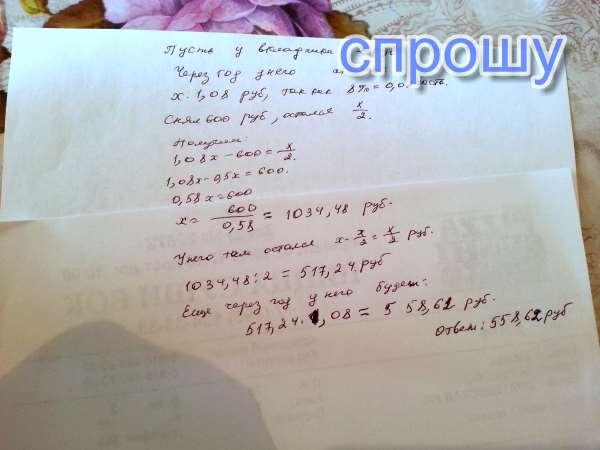 Пусть у вкладчика
спрошу
Через год у него
x · 1,08 руб, так как 8% = 0,0
Снял 600 руб, остался x/2.
Получим:
1,08x - 600 = x/2.
1,08x - 0,5x = 600.
0,58x = 600
x = 600/0,58 = 1034,48 руб.
У него там остался x - x/2 = x/2 руб.
1034,48 : 2 = 517,24 руб
Еще через год у него будет:
517,24 · 1,08 = 558,62 руб.
Ответ: 558,62 руб